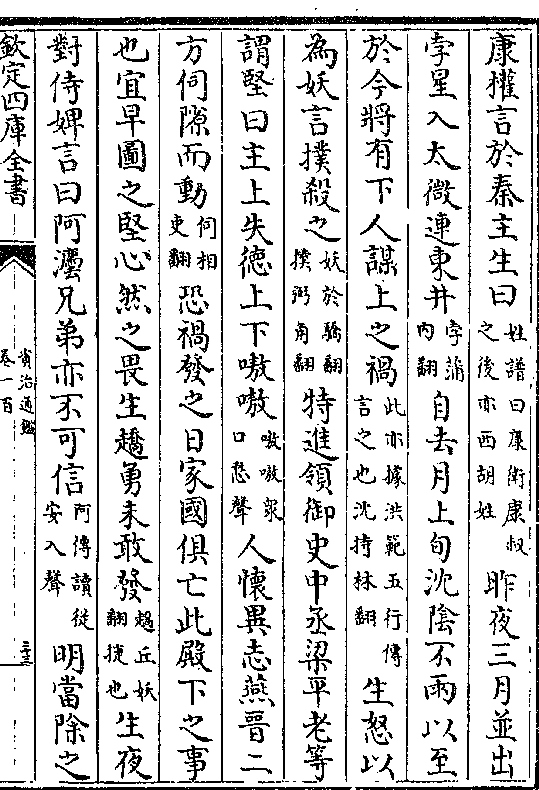 康權言於秦主生曰姓譜曰康衛康叔之後亦西胡姓昨夜三月並出
孛星入太微連東井孛蒲内翻自去月上旬沈陰不雨以至
於今將有下人謀上之禍此亦據洪範五行傳言之也沈持林翻生怒以
為妖言撲殺之妖於驕翻撲弼角翻特進領御史中丞梁平老等
謂堅曰主上失德上下嗷嗷嗷嗷衆口愁聲人懷異志燕晉二
方伺隙而動伺相吏翻恐禍發之日家國俱亡此殿下之事
也宜早圖之堅心然之畏生趫勇未敢發趫丘妖翻捷也生夜
對侍婢言曰阿灋兄弟亦不可信阿傳讀從安入聲明當除之
欽定四庫全書
資治通鑑
卷一百
二十三